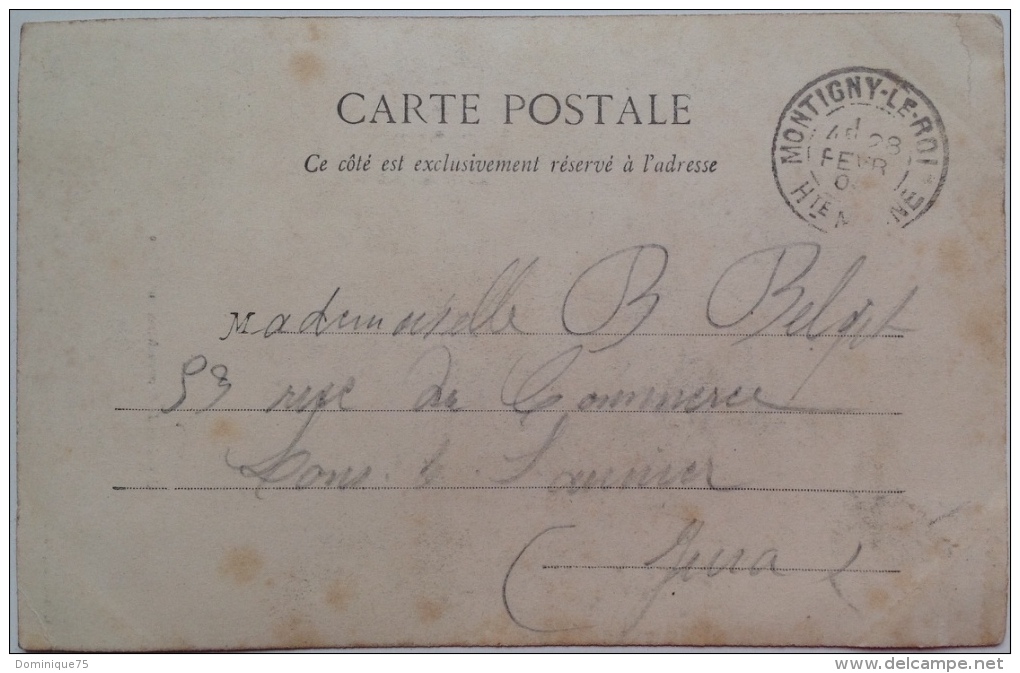 CARTE POSTALE
Ce côté est exclusivement réservé à l'adresse
MONTIGNY-LE-ROI
28
FEVR
HTE
NE
Mademoiselle B
53 rue du Commerce
Lons-le-Saunier
(Jura)
Dominique75
www.delcampe.net